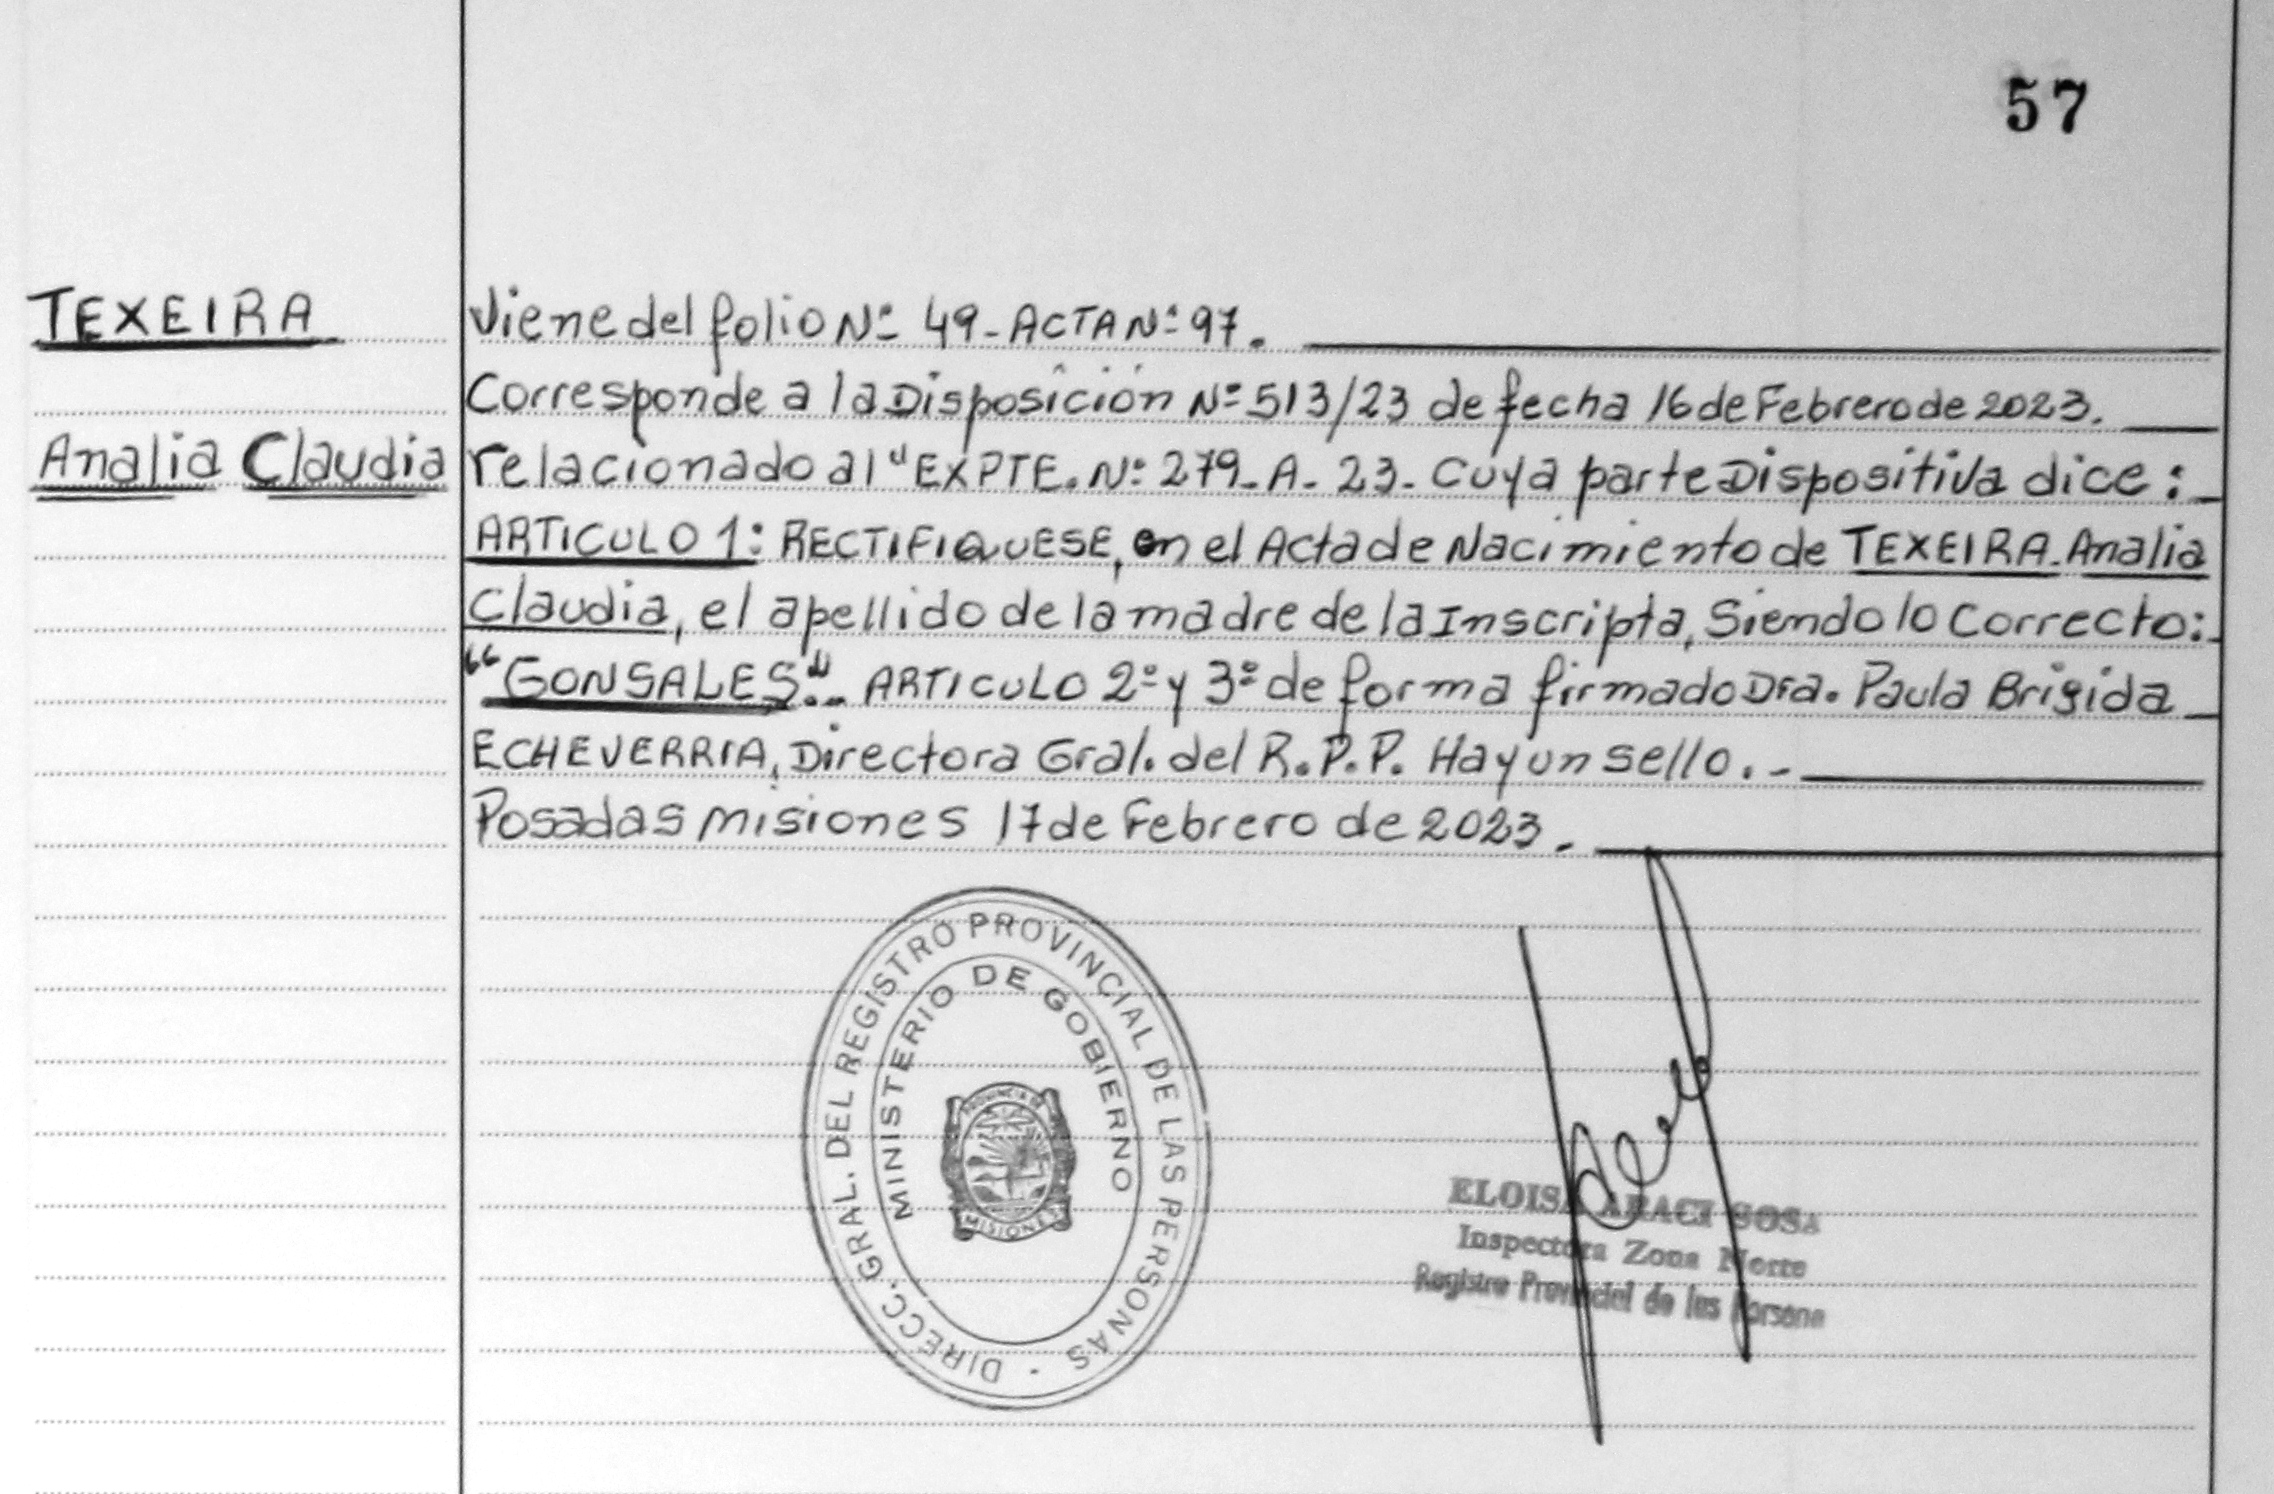 57
TEXEIRA
Analia Claudia
Viene del folio Nº 49 - ACTA Nº 97.
Corresponde a la Disposición Nº 513/23 de fecha 16 de Febrero de 2023.
relacionado al "EXPTE. Nº 279-A-23- Cuya parte Dispositiva dice:
ARTICULO 1: RECTIFIQUESE, en el Acta de Nacimiento de TEXEIRA Analia
Claudia, el apellido de la madre de la Inscripta, Siendo lo Correcto:
"GONSALES".- ARTICULO 2º y 3º de forma firmado Dra. Paula Brigida
ECHEVERRIA, Directora Gral. del R.P.P. Hay un sello.-
Posadas Misiones 17 de Febrero de 2023.
DIRECC. GRAL. DEL REGISTRO PROVINCIAL DE LAS PERSONAS
MINISTERIO DE GOBIERNO
PROVINCIA DE
MISIONES
ELOISA ARACI SOSA
Inspectora Zona Norte
Registro Provincial de las Persona